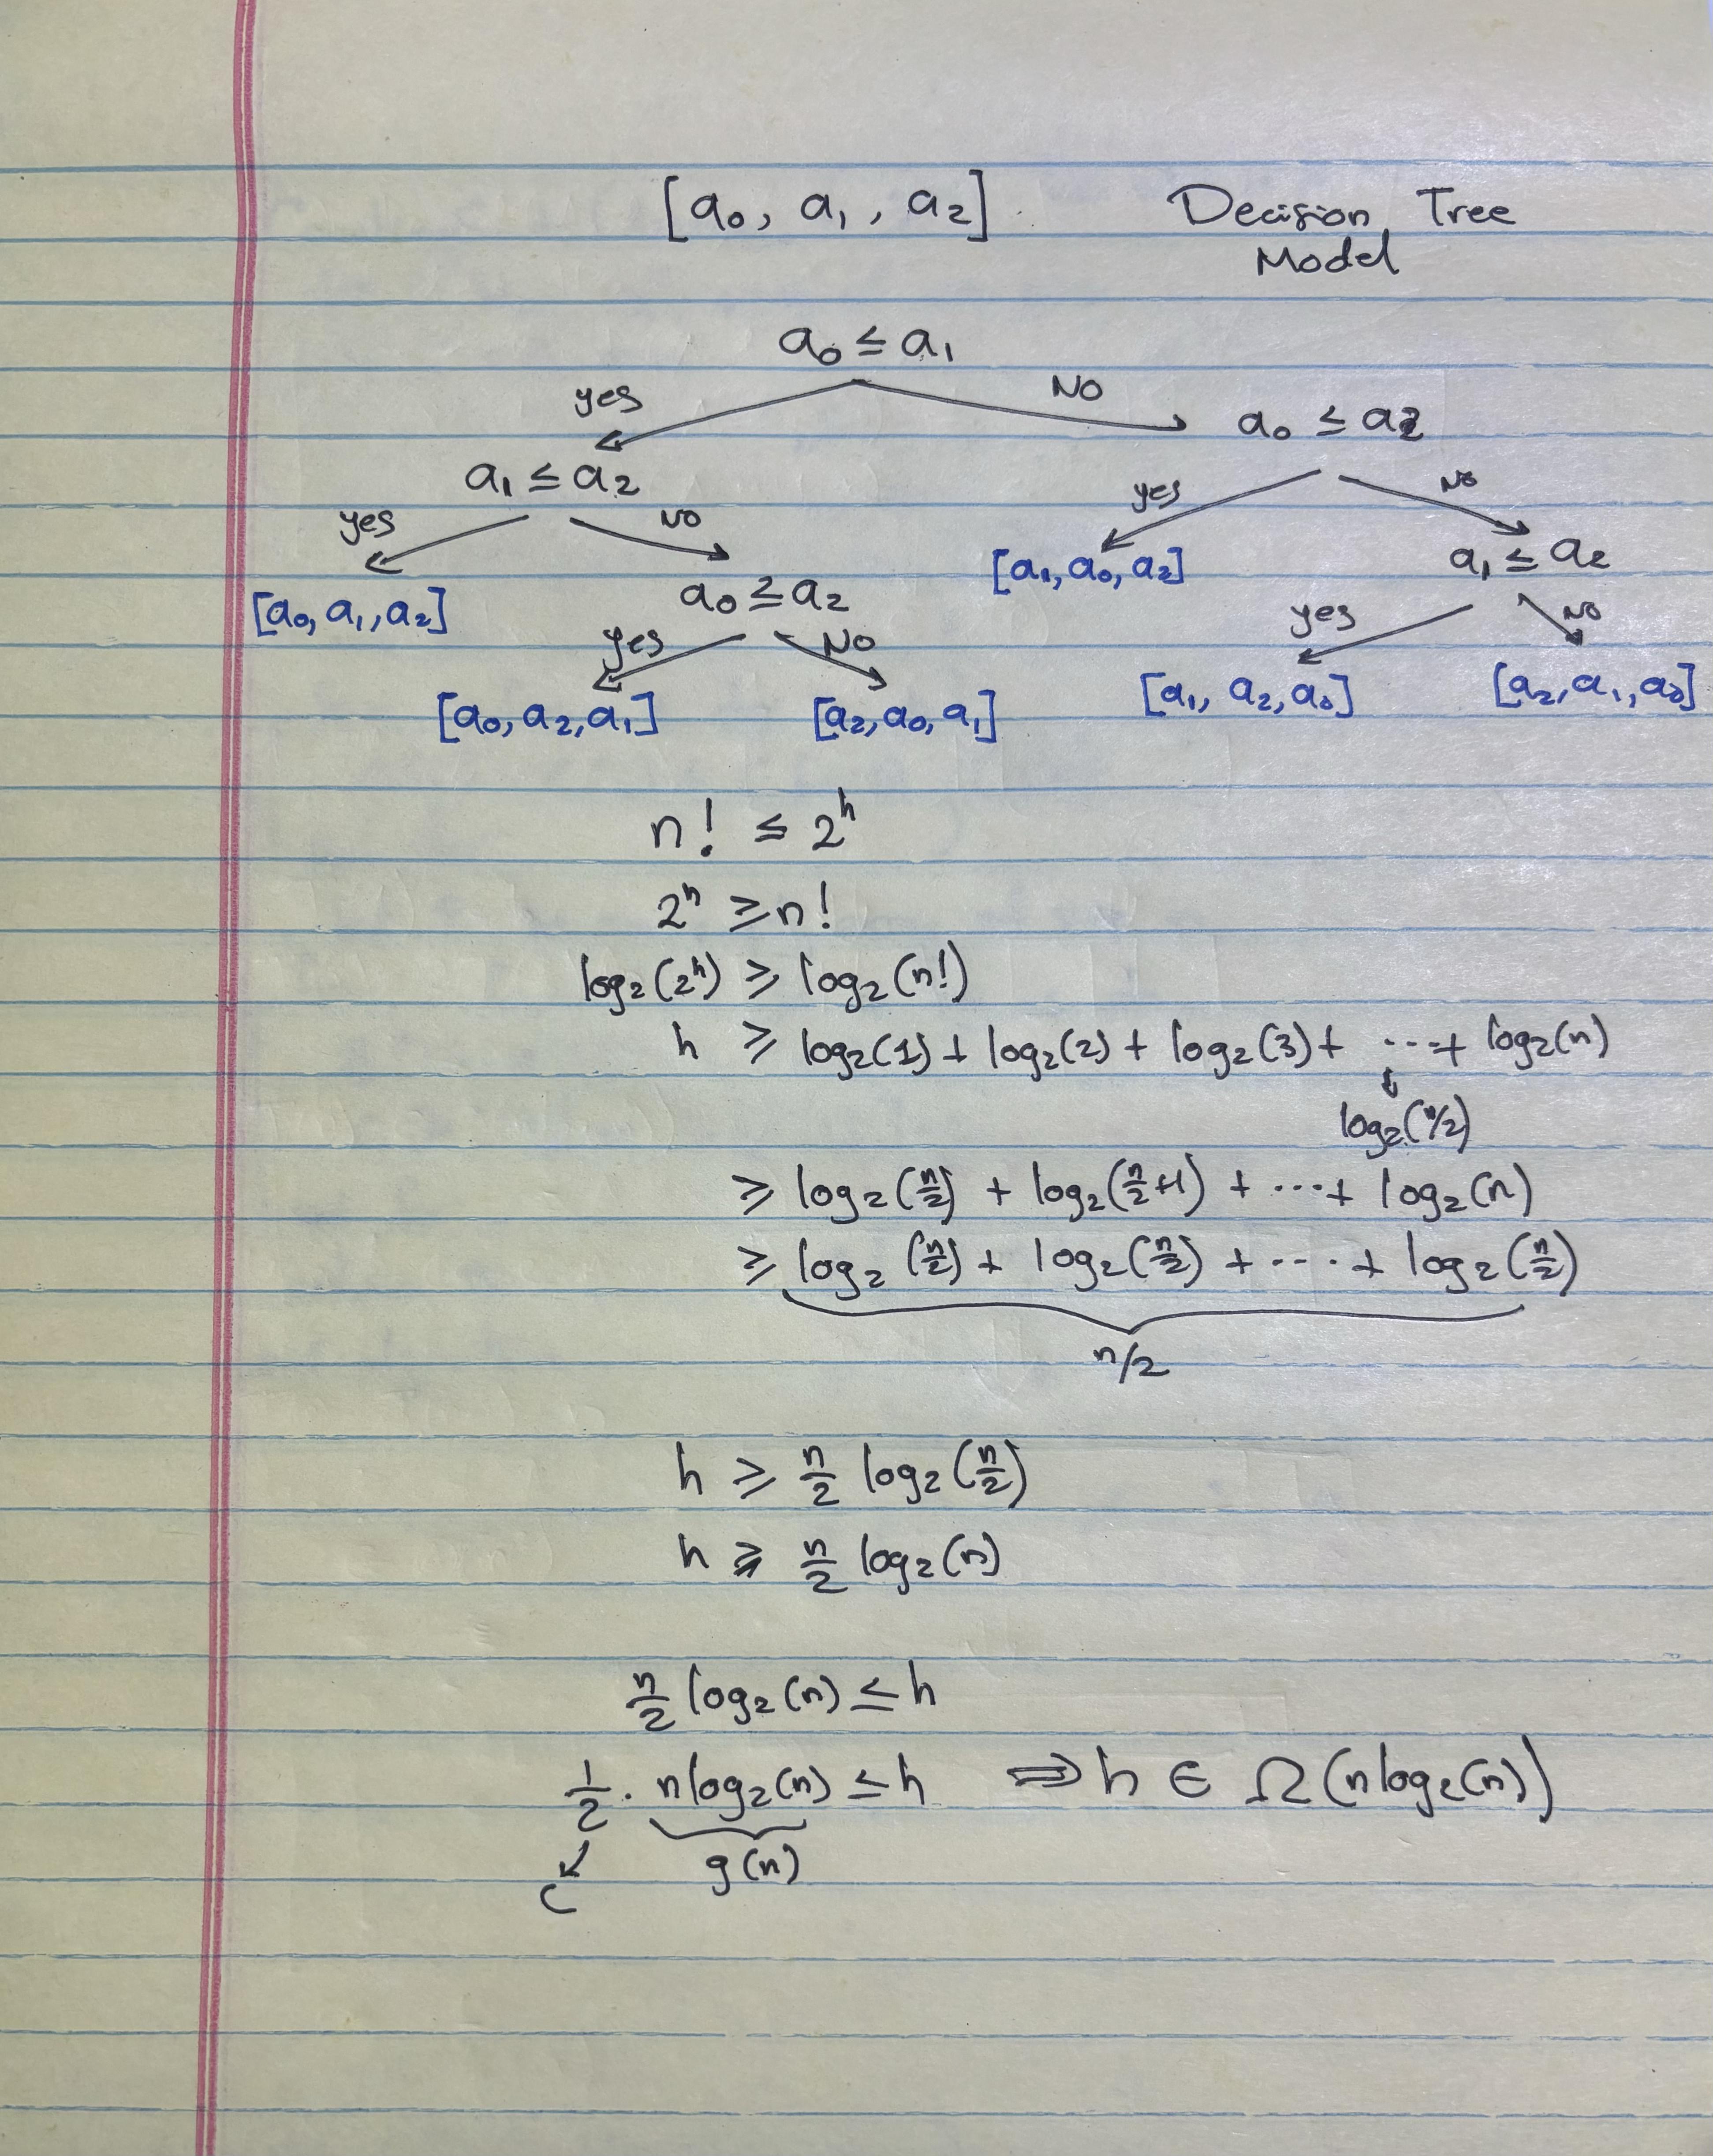 [a₀, a₁, a₂] Decision Tree
Model
a₀ ≤ a₁
yes NO
a₀ ≤ a₂
a₁ ≤ a₂
yes NO
yes NO
[a₁, a₀, a₂] a₁ ≤ a₂
[a₀, a₁, a₂] a₀ ≥ a₂
yes NO
yes NO
[a₁, a₂, a₀] [a₂, a₁, a₀]
[a₀, a₂, a₁] [a₂, a₀, a₁]
n! ≤ 2ʰ
2ʰ ≥ n!
log₂(2ʰ) ≥ log₂(n!)
h ≥ log₂(1) + log₂(2) + log₂(3) + ...+ log₂(n)
↓
log₂(n/2)
≥ log₂(n/2) + log₂(n/2+1) + ...+ log₂(n)
≥ log₂(n/2) + log₂(n/2) + ....+ log₂(n/2)
n/2
h ≥ n/2 log₂(n/2)
h ≥ n/2 log₂(n)
n/2 log₂(n) ≤ h
1/2 · n log₂(n) ≤ h ⇒ h ∈ Ω(n log₂(n))
c g(n)